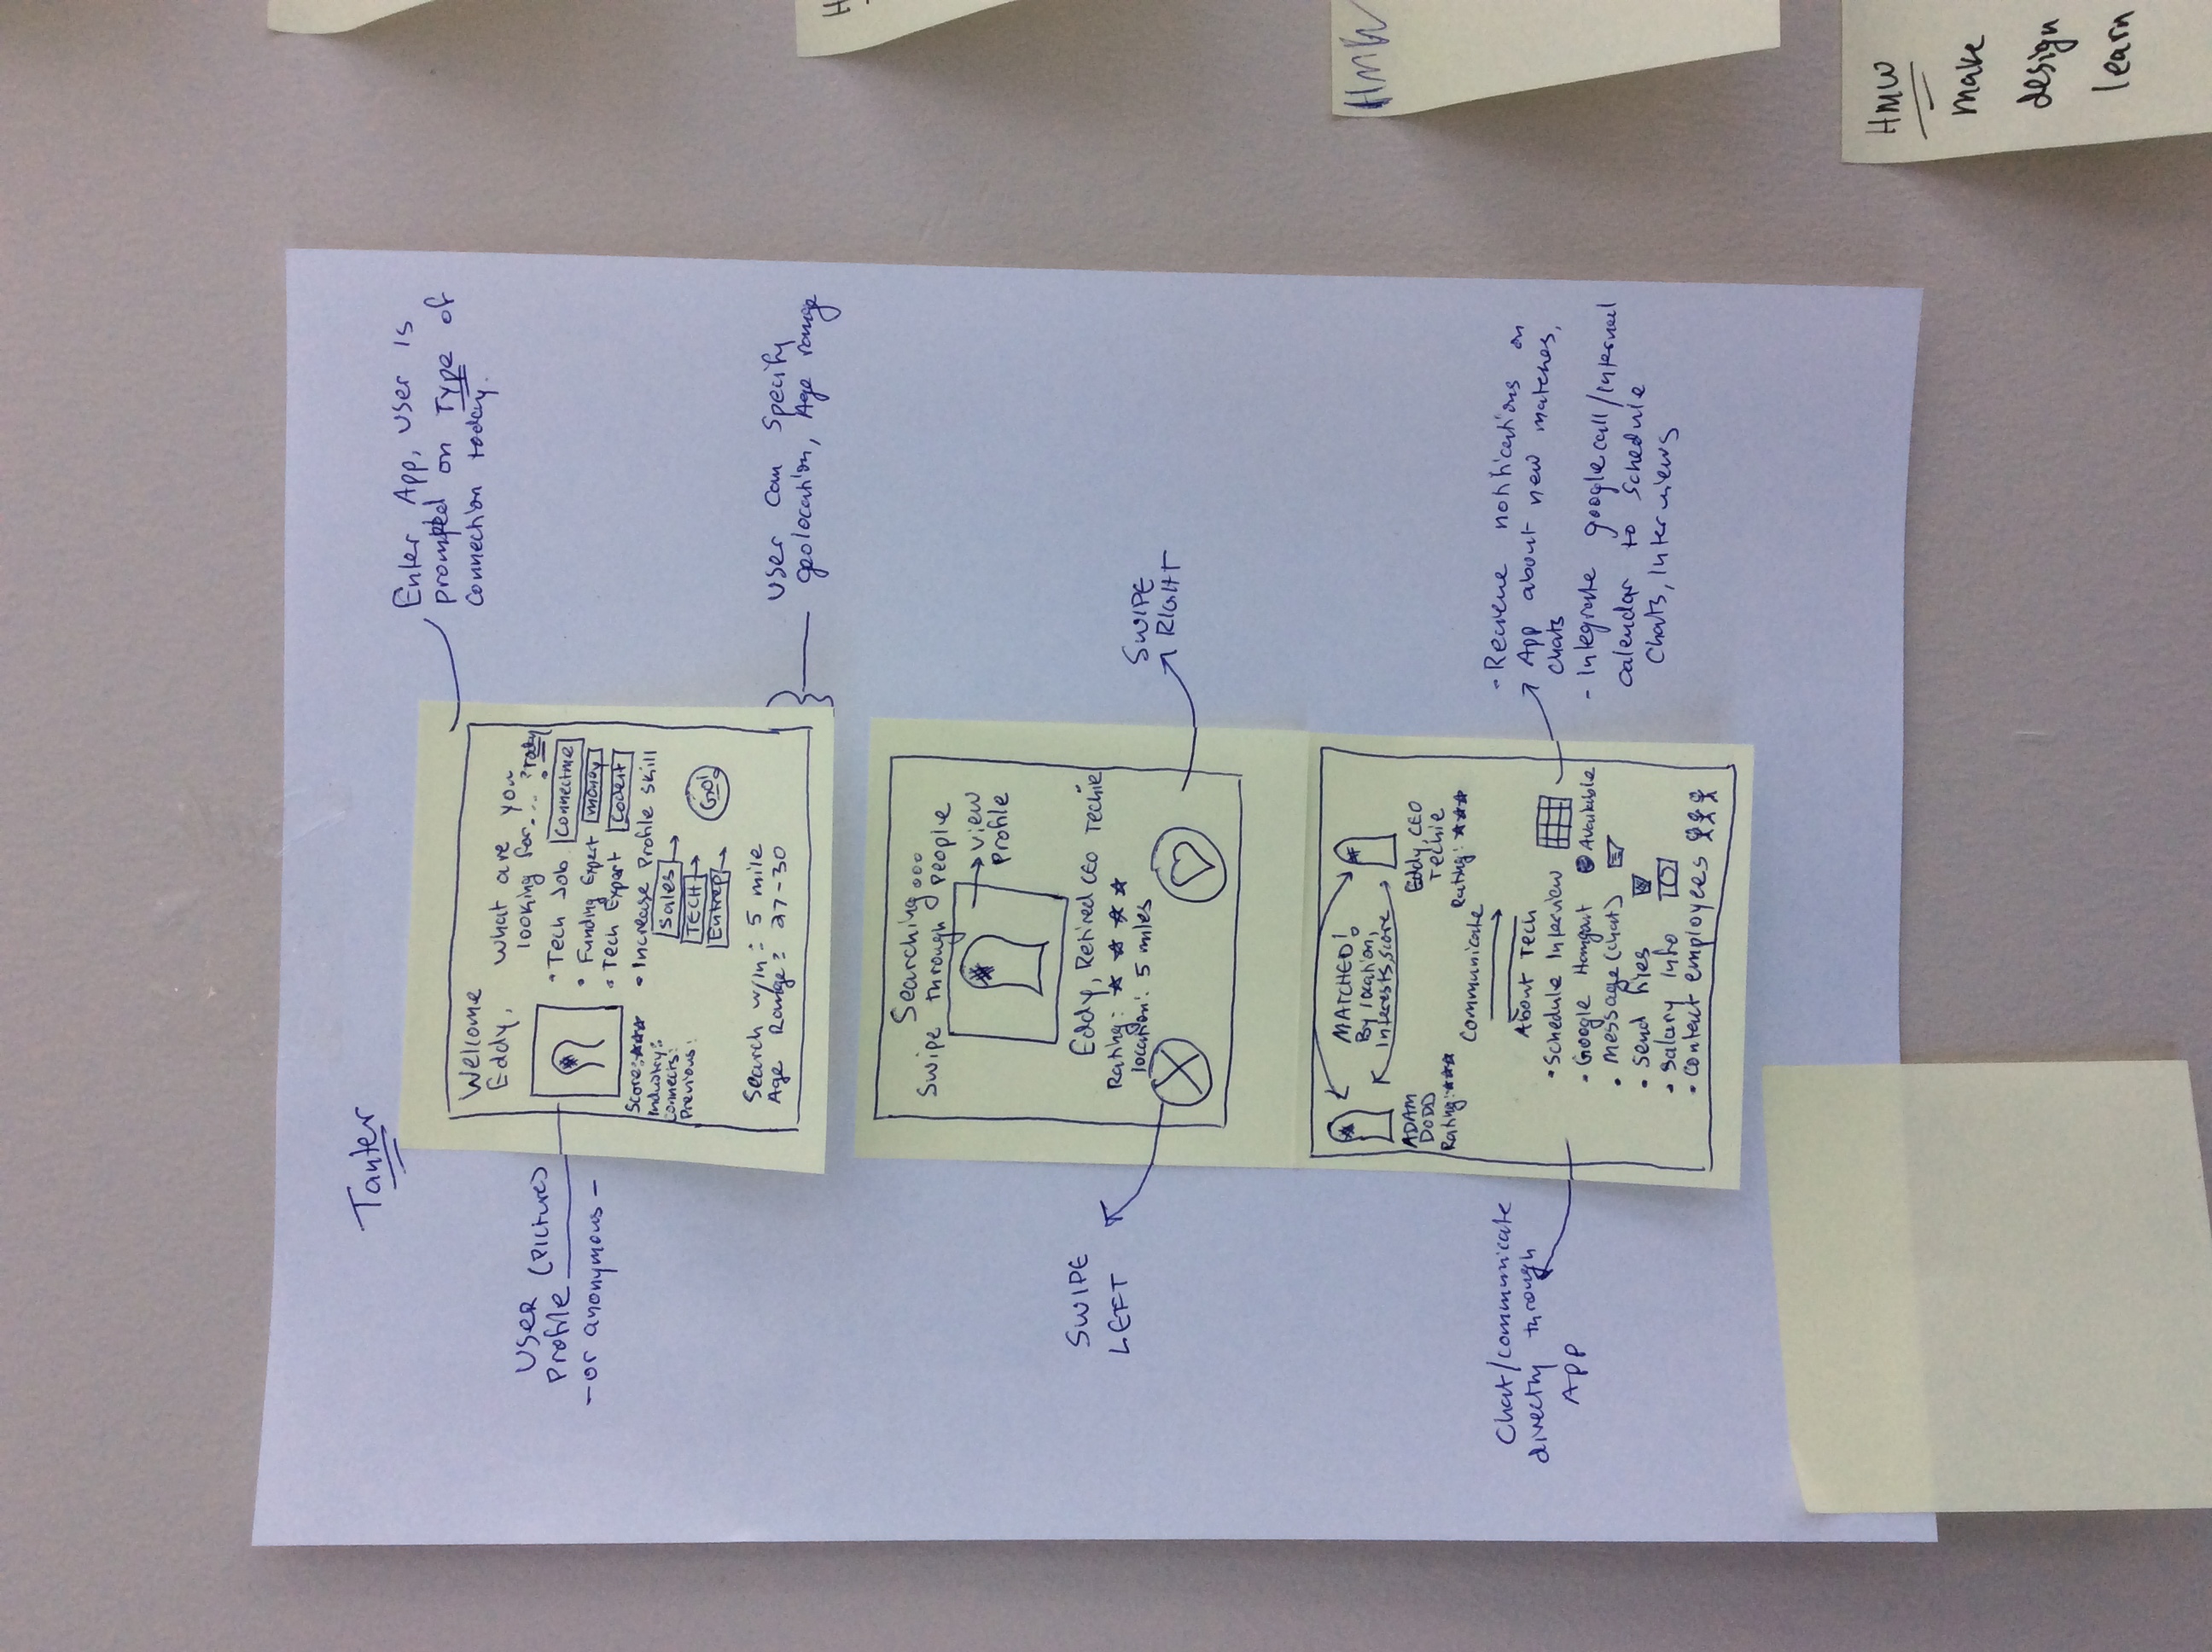 Tanter
Enter App, User is
prompted on Type of
Connection today.
Welcome
Eddy,
What are you
looking for... ? Today
User
Profile (Picture)
- or anonymous -
• Tech Job Connectme
• Funding Expert money
• Tech Expert Codeit
• Increase Profile Skill
Sales
TECH
Entrep
Go!
Score:
Industry:
Connects:
Previous:
Search w/in: 5 mile
Age Range: 27-30
User can specify
geolocation, Age range
Searching...
Swipe through people
view
Profile
Eddy, Retired CEO Techie
Rating:
location: 5 miles
SWIPE
LEFT
SWIPE
RIGHT
MATCHED!
By location,
Interests, score
ADAM
DODD
Rating:
Eddy, CEO
Techie
Rating:
Communicate
About Tech
• Schedule Interview
• Google Hangout Available
• message (chat)
• Send files
• Salary Info
• Contact employees
Chat/communicate
directly through
App
- Recieve notifications on
App about new matches,
chats
- Integrate google call/internal
calendar to schedule
Chats, Interviews
HMW
HMW
make
design
learn